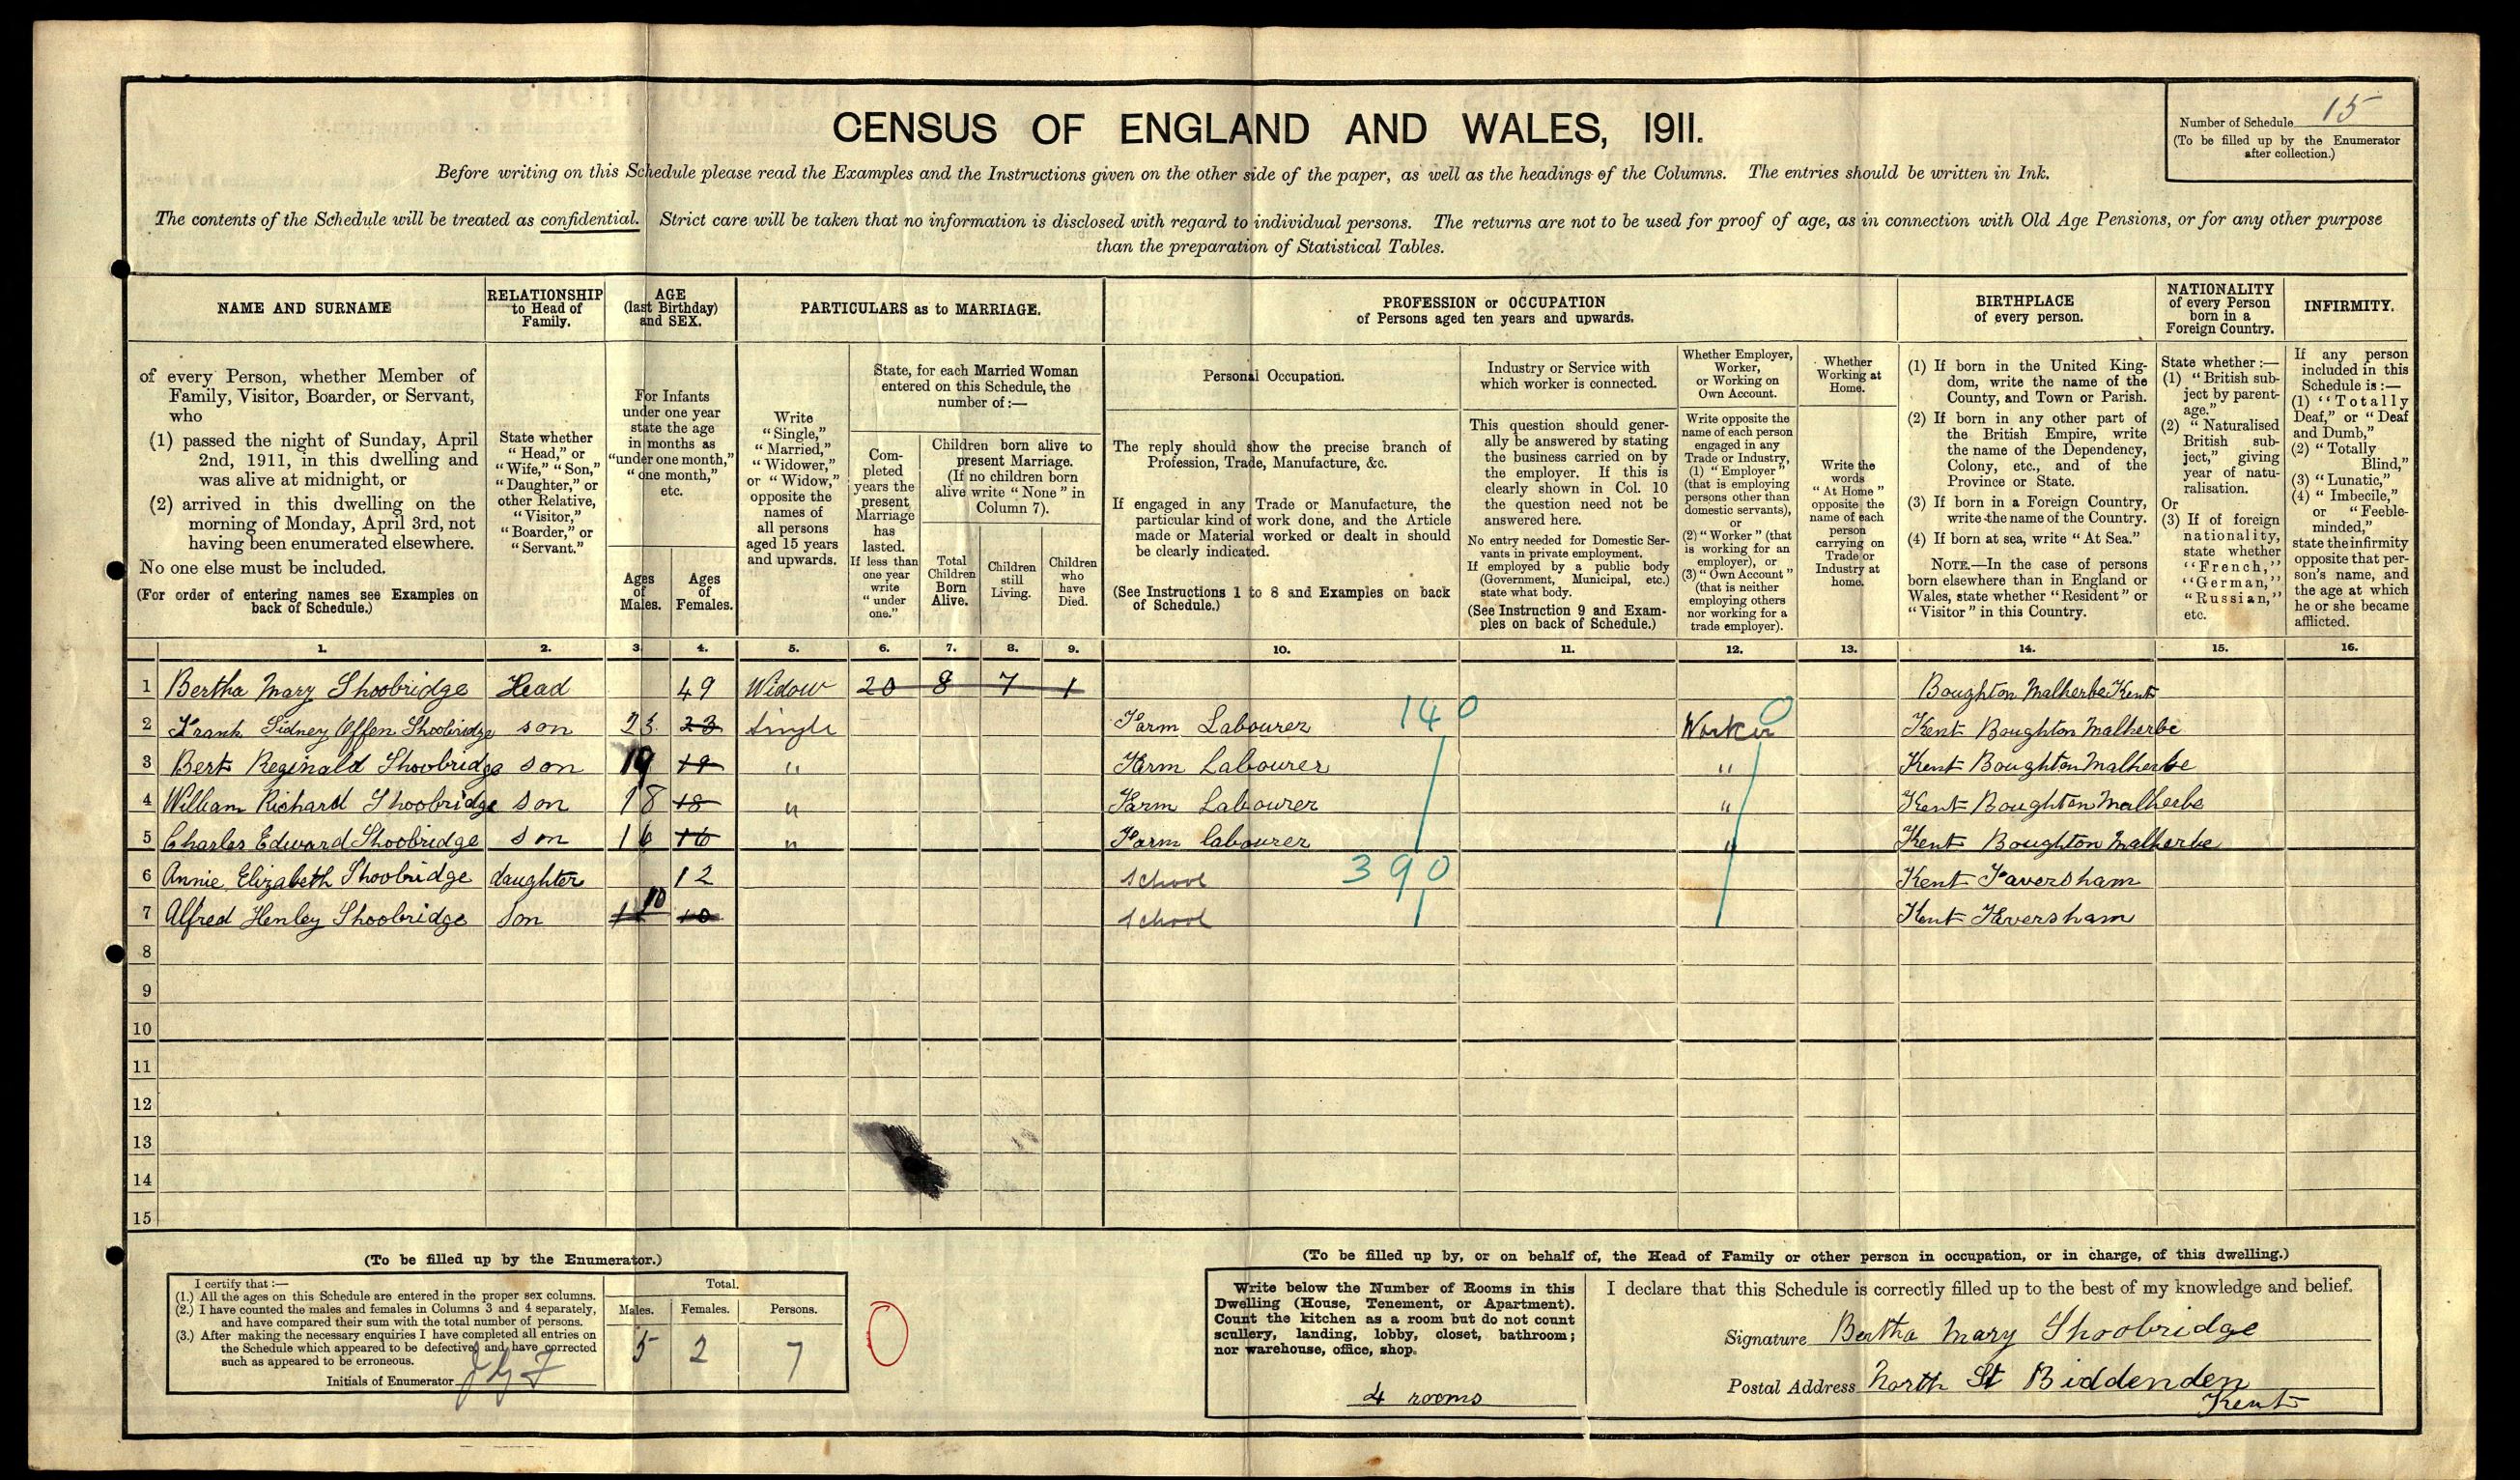 CENSUS OF ENGLAND AND WALES, 1911.
Number of Schedule 15
(To be filled up by the Enumerator
after collection.)
Before writing on this Schedule please read the Examples and the Instructions given on the other side of the paper, as well as the headings of the Columns. The entries should be written in Ink.
The contents of the Schedule will be treated as confidential. Strict care will be taken that no information is disclosed with regard to individual persons. The returns are not to be used for proof of age, as in connection with Old Age Pensions, or for any other purpose
than the preparation of Statistical Tables.
NAME AND SURNAME
of every Person, whether Member of
Family, Visitor, Boarder, or Servant,
who
(1) passed the night of Sunday, April
2nd, 1911, in this dwelling and
was alive at midnight, or
(2) arrived in this dwelling on the
morning of Monday, April 3rd, not
having been enumerated elsewhere.
No one else must be included.
(For order of entering names see Examples on
back of Schedule.)
RELATIONSHIP
to Head of
Family.
State whether
"Head," or
"Wife," "Son,"
"Daughter," or
other Relative,
"Visitor,"
"Boarder," or
"Servant."
AGE
(last Birthday)
and SEX.
For Infants
under one year
state the age
in months as
"under one month,"
"one month,"
etc.
Ages
of
Males.
Ages
of
Females.
PARTICULARS as to MARRIAGE.
Write
"Single,"
"Married,"
"Widower,"
or "Widow,"
opposite the
names of
all persons
aged 15 years
and upwards.
State, for each Married Woman
entered on this Schedule, the
number of:—
Com-
pleted
years the
present
Marriage
has
lasted.
If less than
one year
write
"under
one."
Children born alive to
present Marriage.
(If no children born
alive write "None" in
Column 7).
Total
Children
Born
Alive.
Children
still
Living.
Children
who
have
Died.
PROFESSION or OCCUPATION
of Persons aged ten years and upwards.
Personal Occupation.
The reply should show the precise branch of
Profession, Trade, Manufacture, &c.
If engaged in any Trade or Manufacture, the
particular kind of work done, and the Article
made or Material worked or dealt in should
be clearly indicated.
(See Instructions 1 to 8 and Examples on back
of Schedule.)
Industry or Service with
which worker is connected.
This question should gener-
ally be answered by stating
the business carried on by
the employer. If this is
clearly shown in Col. 10
the question need not be
answered here.
No entry needed for Domestic Ser-
vants in private employment.
If employed by a public body
(Government, Municipal, etc.)
state what body.
(See Instruction 9 and Exam-
ples on back of Schedule.)
Whether Employer,
Worker,
or Working on
Own Account.
Write opposite the
name of each person
engaged in any
Trade or Industry,
(1) "Employer"
(that is employing
persons other than
domestic servants),
or
(2) "Worker" (that
is working for an
employer), or
(3) "Own Account"
(that is neither
employing others
nor working for a
trade employer).
Whether
Working at
Home.
Write the
words
"At Home"
opposite the
name of each
person
carrying on
Trade or
Industry at
home.
BIRTHPLACE
of every person.
(1) If born in the United King-
dom, write the name of the
County, and Town or Parish.
(2) If born in any other part of
the British Empire, write
the name of the Dependency,
Colony, etc., and of the
Province or State.
(3) If born in a Foreign Country,
write the name of the Country.
(4) If born at sea, write "At Sea."
NOTE.—In the case of persons
born elsewhere than in England or
Wales, state whether "Resident" or
"Visitor" in this Country.
NATIONALITY
of every Person
born in a
Foreign Country.
State whether:—
(1) "British sub-
ject by parent-
age."
(2) "Naturalised
British sub-
ject," giving
year of natu-
ralisation.
Or
(3) If of foreign
nationality,
state whether
"French,"
"German,"
"Russian,"
etc.
INFIRMITY.
If any person
included in this
Schedule is:—
(1) "Totally
Deaf," or "Deaf
and Dumb,"
(2) "Totally
Blind,"
(3) "Lunatic,"
(4) "Imbecile,"
or "Feeble-
minded,"
state the infirmity
opposite that per-
son's name, and
the age at which
he or she became
afflicted.
1. 2. 3. 4. 5. 6. 7. 8. 9. 10. 11. 12. 13. 14. 15. 16.
1 Bertha Mary Shoobridge Head 49 Widow 20 8 7 1 Boughton Malherbe Kent
2 Frank Sidney Offen Shoobridge son 23 23 Single Farm Labourer 140 Worker 0 Kent Boughton Malherbe
3 Bert Reginald Shoobridge son 19 19 " Farm Labourer " Kent Boughton Malherbe
4 William Richard Shoobridge son 18 18 " Farm Labourer " Kent Boughton Malherbe
5 Charles Edward Shoobridge son 16 16 " Farm labourer " Kent Boughton Malherbe
6 Annie Elizabeth Shoobridge daughter 12 School 390 Kent Faversham
7 Alfred Henley Shoobridge Son 10 10 School Kent Faversham
8
9
10
11
12
13
14
15
(To be filled up by the Enumerator.)
I certify that:—
(1.) All the ages on this Schedule are entered in the proper sex columns.
(2.) I have counted the males and females in Columns 3 and 4 separately,
and have compared their sum with the total number of persons.
(3.) After making the necessary enquiries I have completed all entries on
the Schedule which appeared to be defective, and have corrected
such as appeared to be erroneous.
Initials of Enumerator
Total.
Males. Females. Persons.
5 2 7
(To be filled up by, or on behalf of, the Head of Family or other person in occupation, or in charge, of this dwelling.)
Write below the Number of Rooms in this
Dwelling (House, Tenement, or Apartment).
Count the kitchen as a room but do not count
scullery, landing, lobby, closet, bathroom;
nor warehouse, office, shop.
4 rooms
I declare that this Schedule is correctly filled up to the best of my knowledge and belief.
Signature Bertha Mary Shoobridge
Postal Address North St Biddenden
Kent